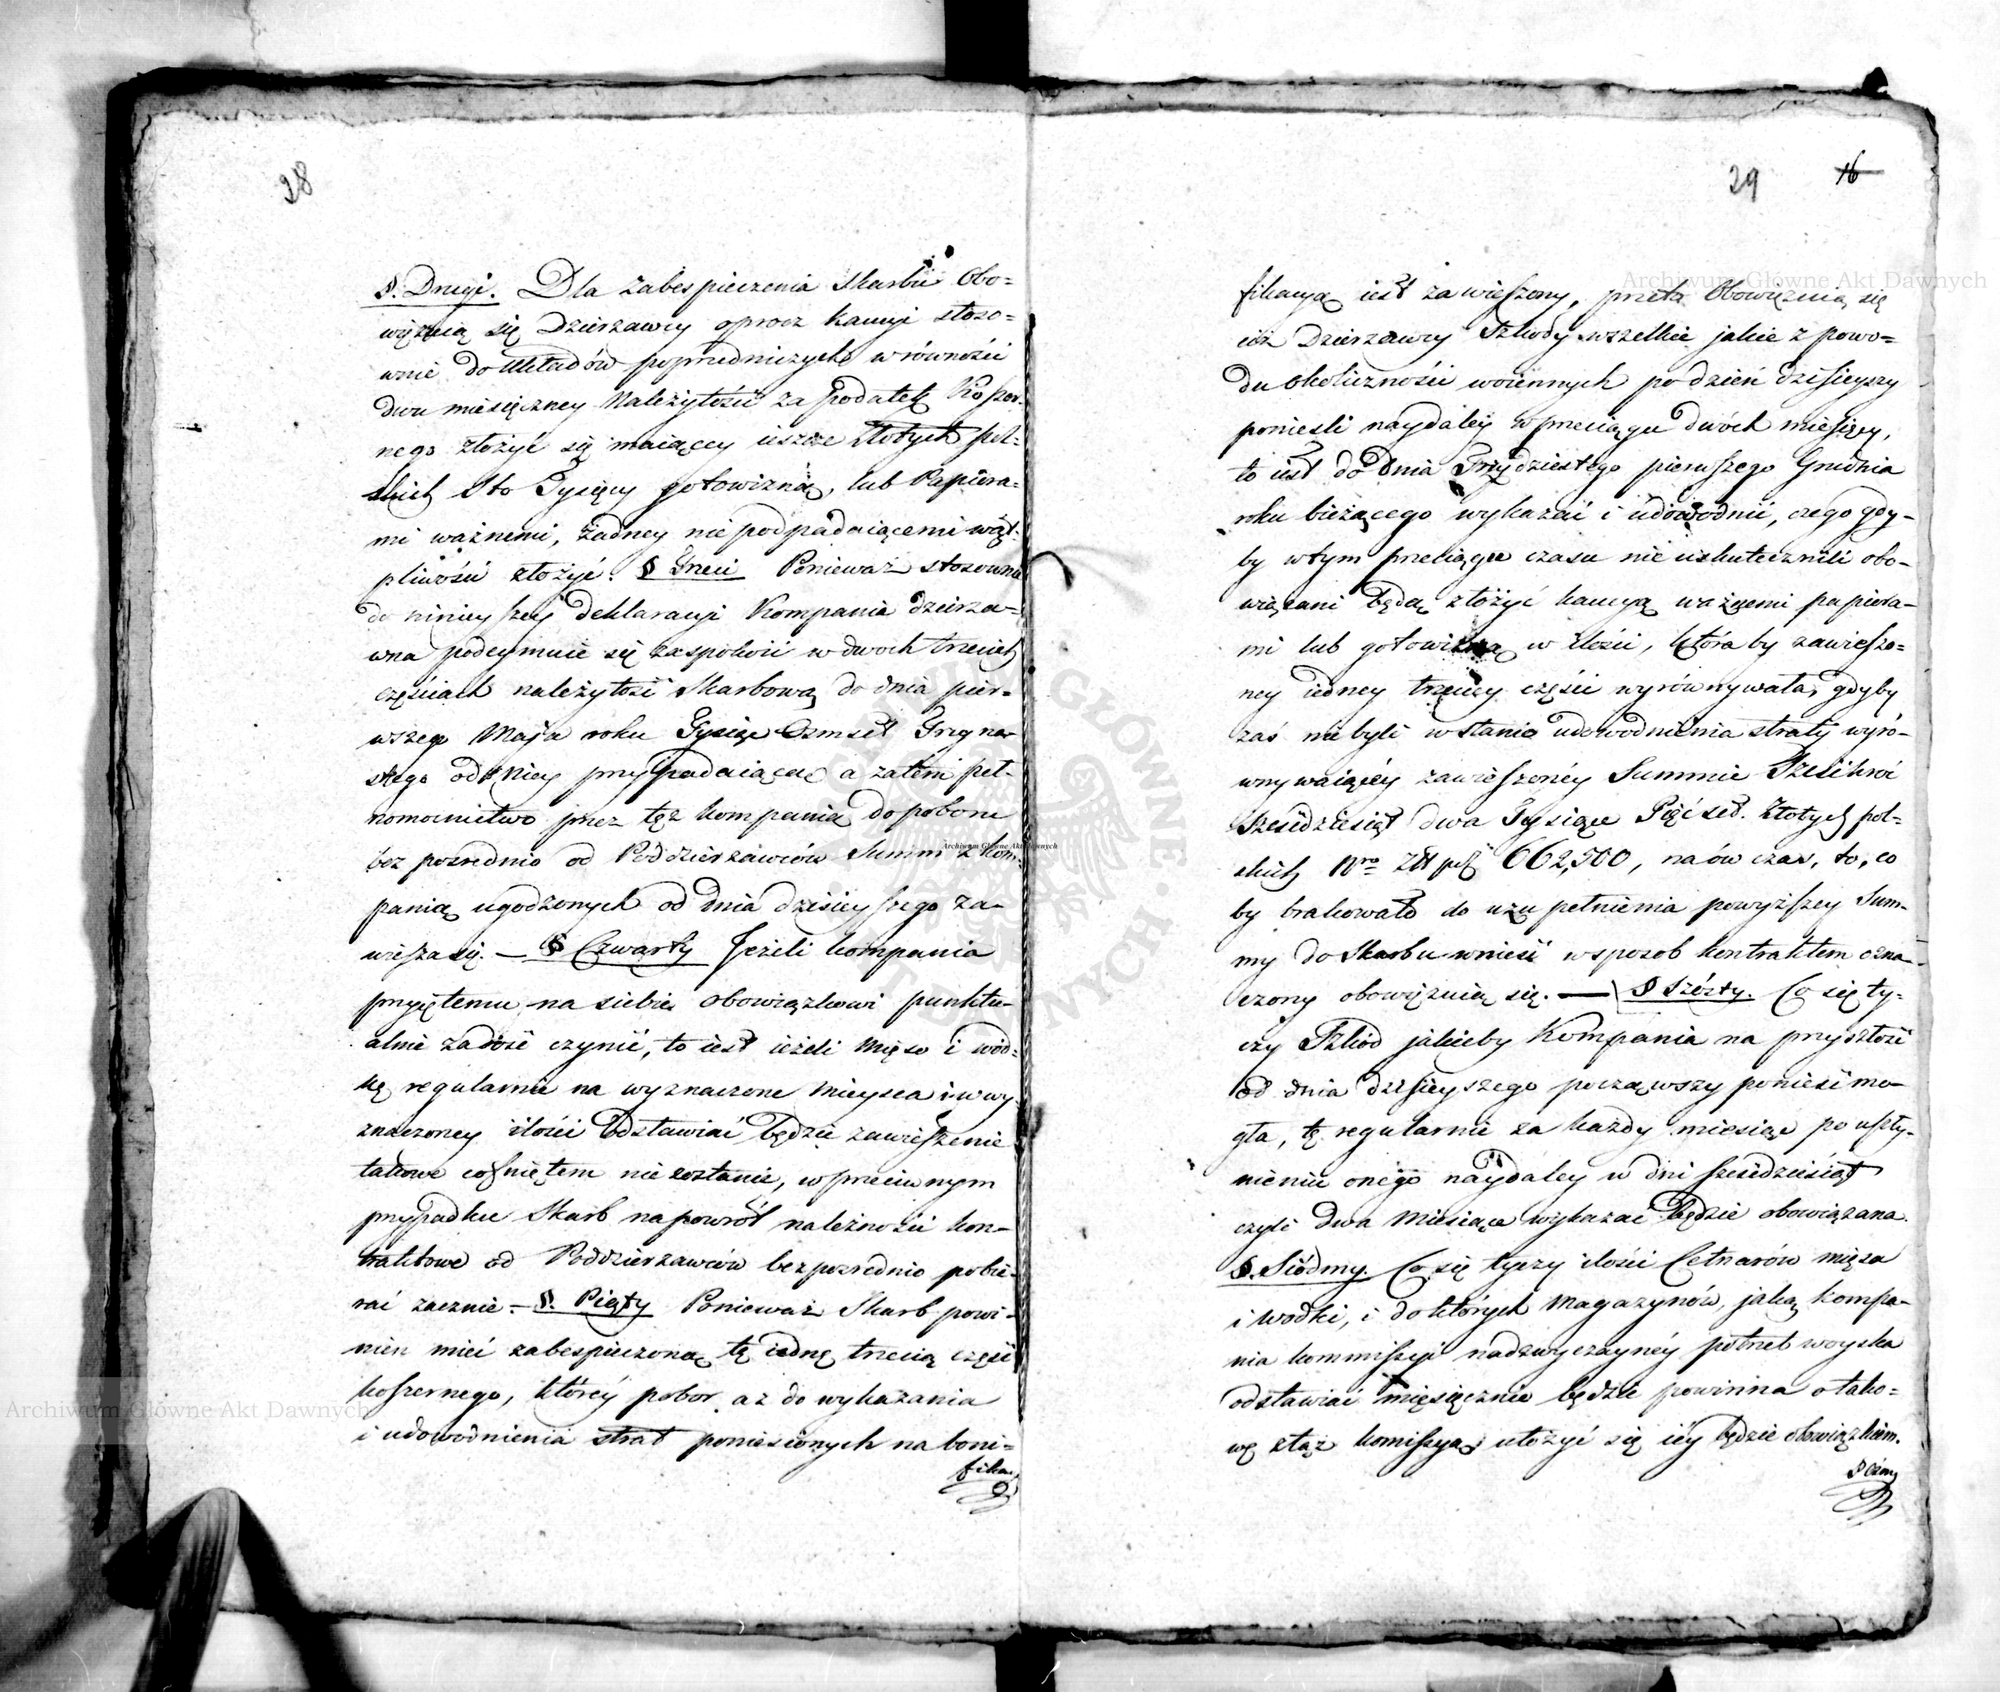 28
§. Drugi. Dla zabespieczenia Skarbu Obo=
więzuią się Dzierzawcy oprocz kaucyi stoso=
wnie do Układów poprzedniczych w równości
dwu miesięczney Należytości za podatek Koszer=
nego złożyć się maiącey ieszcze złotych pol=
skich Sto Tysięcy gotowizną, lub Papiera=
mi ważnemi, żadney nie podpadaiącemi wąt=
pliwości złożyć. § Trzeci Ponieważ stosowna
do ninieyszey deklaracyi Kompania dzierza=
wna podeymuie się zaspokoić w dwoch trzecich
częściach należytość Skarbową do dnia pier=
wszego Maja roku Tysiąc Osmset Trzyna=
stego od niey przypadaiącą a zatem peł=
nomocnictwo przez tęż kompanią do poboru
bez posrednio od Poddzierżawców Summ z kom=
panią ugodzonych od dnia dzisieyszego za=
wiesza się. — § Czwarty Jeżeli kompania
przyiętemu na siebie obowiązkowi punktu=
alnie zadość czynić, to iest ieżeli Mięso i wód=
kę regularnie na wyznaczone mieysca i w wy=
znaczoney ilości odstawiać będzie zawieszenie
takowe cofniętem nie zostanie, w przeciwnym
przypadku Skarb napowrót należności kon=
traktowe od Poddzierzawców bezpozrednio pobie=
rać zacznie. — §. Piąty Ponieważ Skarb powi=
nien mieć zabespieczoną tę iednę trzecią część
koszernego, którey pobor aż do wykazania
i udowodnienia strat poniesionych na boni=
fika=
29 16
fikacyą iest zawieszony, przeto Obowięzuią się
ciż Dzierzawcy Szkody wszelkie jakie z powo=
du okoliczności woiennych po dzień dzisieyszy
ponieśli naydaley w przeciągu dwóch miesięcy,
to iest do dnia Trzydziestego pierwszego Grudnia
roku bieżącego wykazać i udowodnić, czego gdy=
by w tym przeciągu czasu nie uskutecznili obo=
wiązani będą złożyć kaucyą ważnemi papiera=
mi lub gotowizną w ilości, któraby zawieszo=
ney iedney trzeciey części wyrównywała, gdyby
zaś nie byli w stanie udowodnienia straty wyró=
wnywaiącéy zawieszonéy Summie Sześćkroć
Sześcdziesiąt dwa Tysiące Pięćset. Złotych pol=
skich Nro Zł pol 662,500, na ów czas, to, co
by brakowało do uzupełnienia powyższey Sum=
my do Skarbu wnieść w sposob kontraktem ozna=
czony obowięzuią się. — § Szósty. Co się ty=
czy Szkód jakieby Kompania na przyszłość
od dnia dzisieyszego począwszy ponieść mo=
gła, te regularnie za każdy miesiąc po upły=
nieniu onégo naydaley w dni sześćdziesiąt
czyli dwa Miesiące wykazać będzie obowiązana.
§. Siódmy. Co się tyczy ilości Cetnarów mięsa
i wodki, i do których Magazynów, jaką kompa=
nia kommissyi nadzwyczaynéy potrzeb woyska
odstawiać mięsięcznie będzie powinna o tako=
wę z taż komissyą ułożyć się iéy będzie obowiązkiem.
§ Osmy